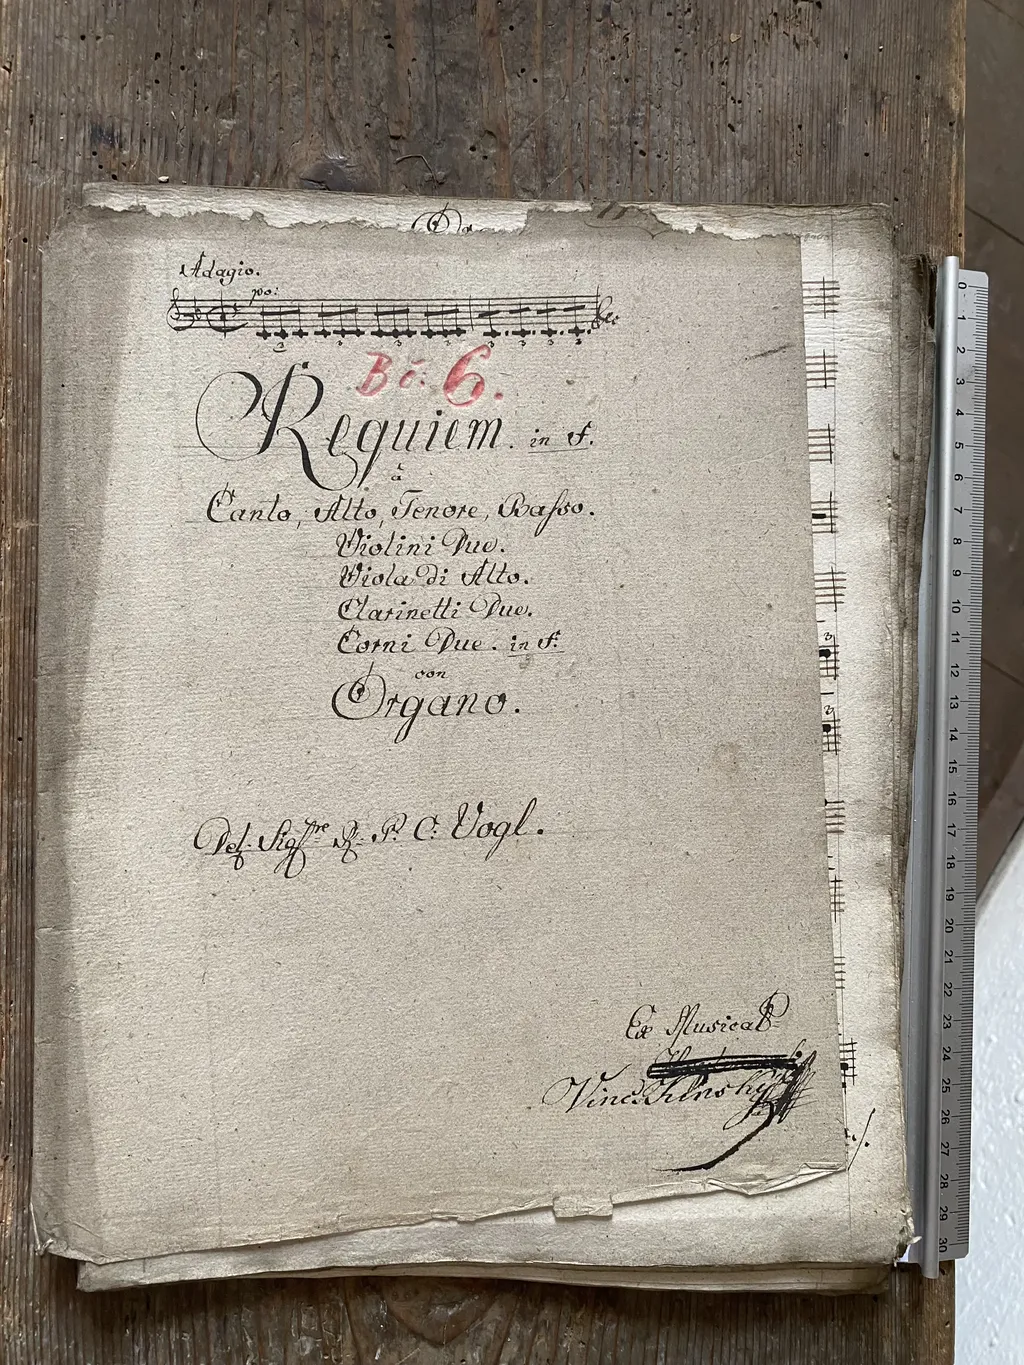 Adagio.
po:
Bĕ. 6.
Requiem. in F.
à
Canto, Alto, Tenore, Basso.
Violini Due.
Viola di Alto.
Clarinetti Due.
Corni Due. in F.
con
Organo.
Del Sigre R. P. C. Vogl.
Ex Musical
Vinc.
0 1 2 3 4 5 6 7 8 9 10 11 12 13 14 15 16 17 18 19 20 21 22 23 24 25 26 27 28 29 30